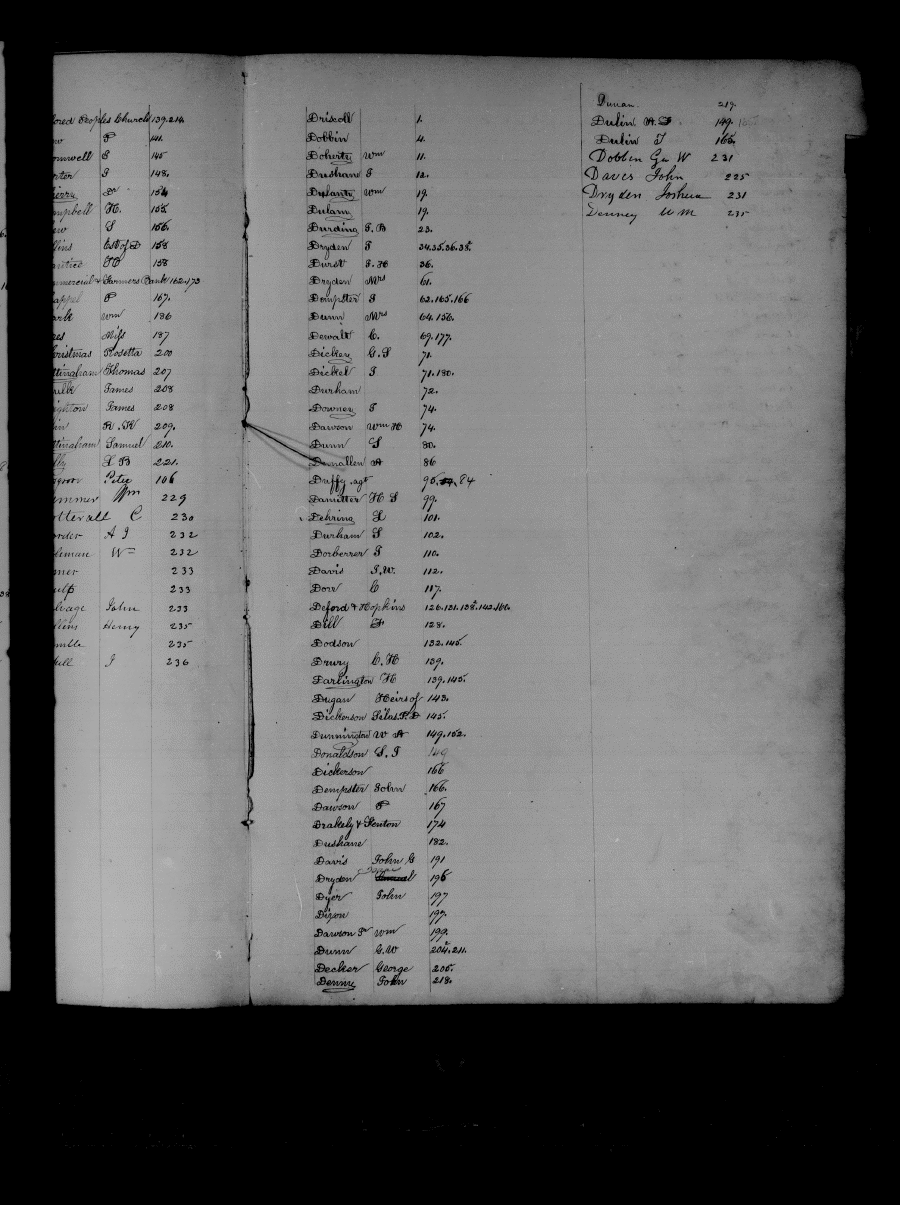 Peoples Church 139.214.
P 141.
omwell S 145
rter S 148.
Dr 154
mpbell H. 155.
ew S 156.
llins Est of D 158
H 158
mmercial & Farmers Bank 162.173
appel P 167.
ark Wm 186
es Miss 187
hristmas Rosetta 200
ttingham Thomas 207
James 208
ighton James 208
R. K 209.
ttingham Samuel 210.
L B 221.
Peter 106
ummer Wm 229
otterall C 230
order A J 232
leman Wm 232
mer 233
ulp 233
lvage John 233
llins Henry 235
mble 235
hill J 236
Driscoll 1.
Dobbin 4.
Doherty Wm 11.
Dusham S 12.
Dulanty Wm 19.
Dulany 19.
Durding J. B 23.
Dryden J 34.35.36.38.
Durst J. H 36.
Dryden Mrs 61.
Dempster J 62.165.166
Dunn Mrs 64.156.
Dewalt C. 69.177.
Dickey G. S 71.
Dickel J 71.180.
Durham 72.
Downey J 74.
Dawson Wm H 74.
Dunn S 80.
Dunallen A 86
Duffy agt 96. 84
Damitter H S 99.
Dehring L 101.
Durham S 102.
Dorberrer J 110.
Davis J. W. 112.
Dorr C 117.
Deford & Hopkins 126.131.138.142.160.
Dill F 128.
Dodson 132.145.
Drury C. H 139.
Darlington H 139.145.
Dugan Heirs of 143.
Dickerson Silas. P. D 145.
Dunnington W A 149.152.
Donaldson S. J 149
Dickerson 166
Dempster John 166.
Dawson P 167
Drakely & Fenton 174
Dushane 182.
Davis John G 191
Dryden 196
Dyer John 197
Dixon 197.
Dawson Jr Wm 199.
Dunn G. W 204.211.
Decker George 205.
Denny John 218.
Dunan. 219.
Dulin A. S 149.
Dulin J 165.
Dobbin Geo W 231
Daves John 225
Dryden Joshua 231
Denney W M 235